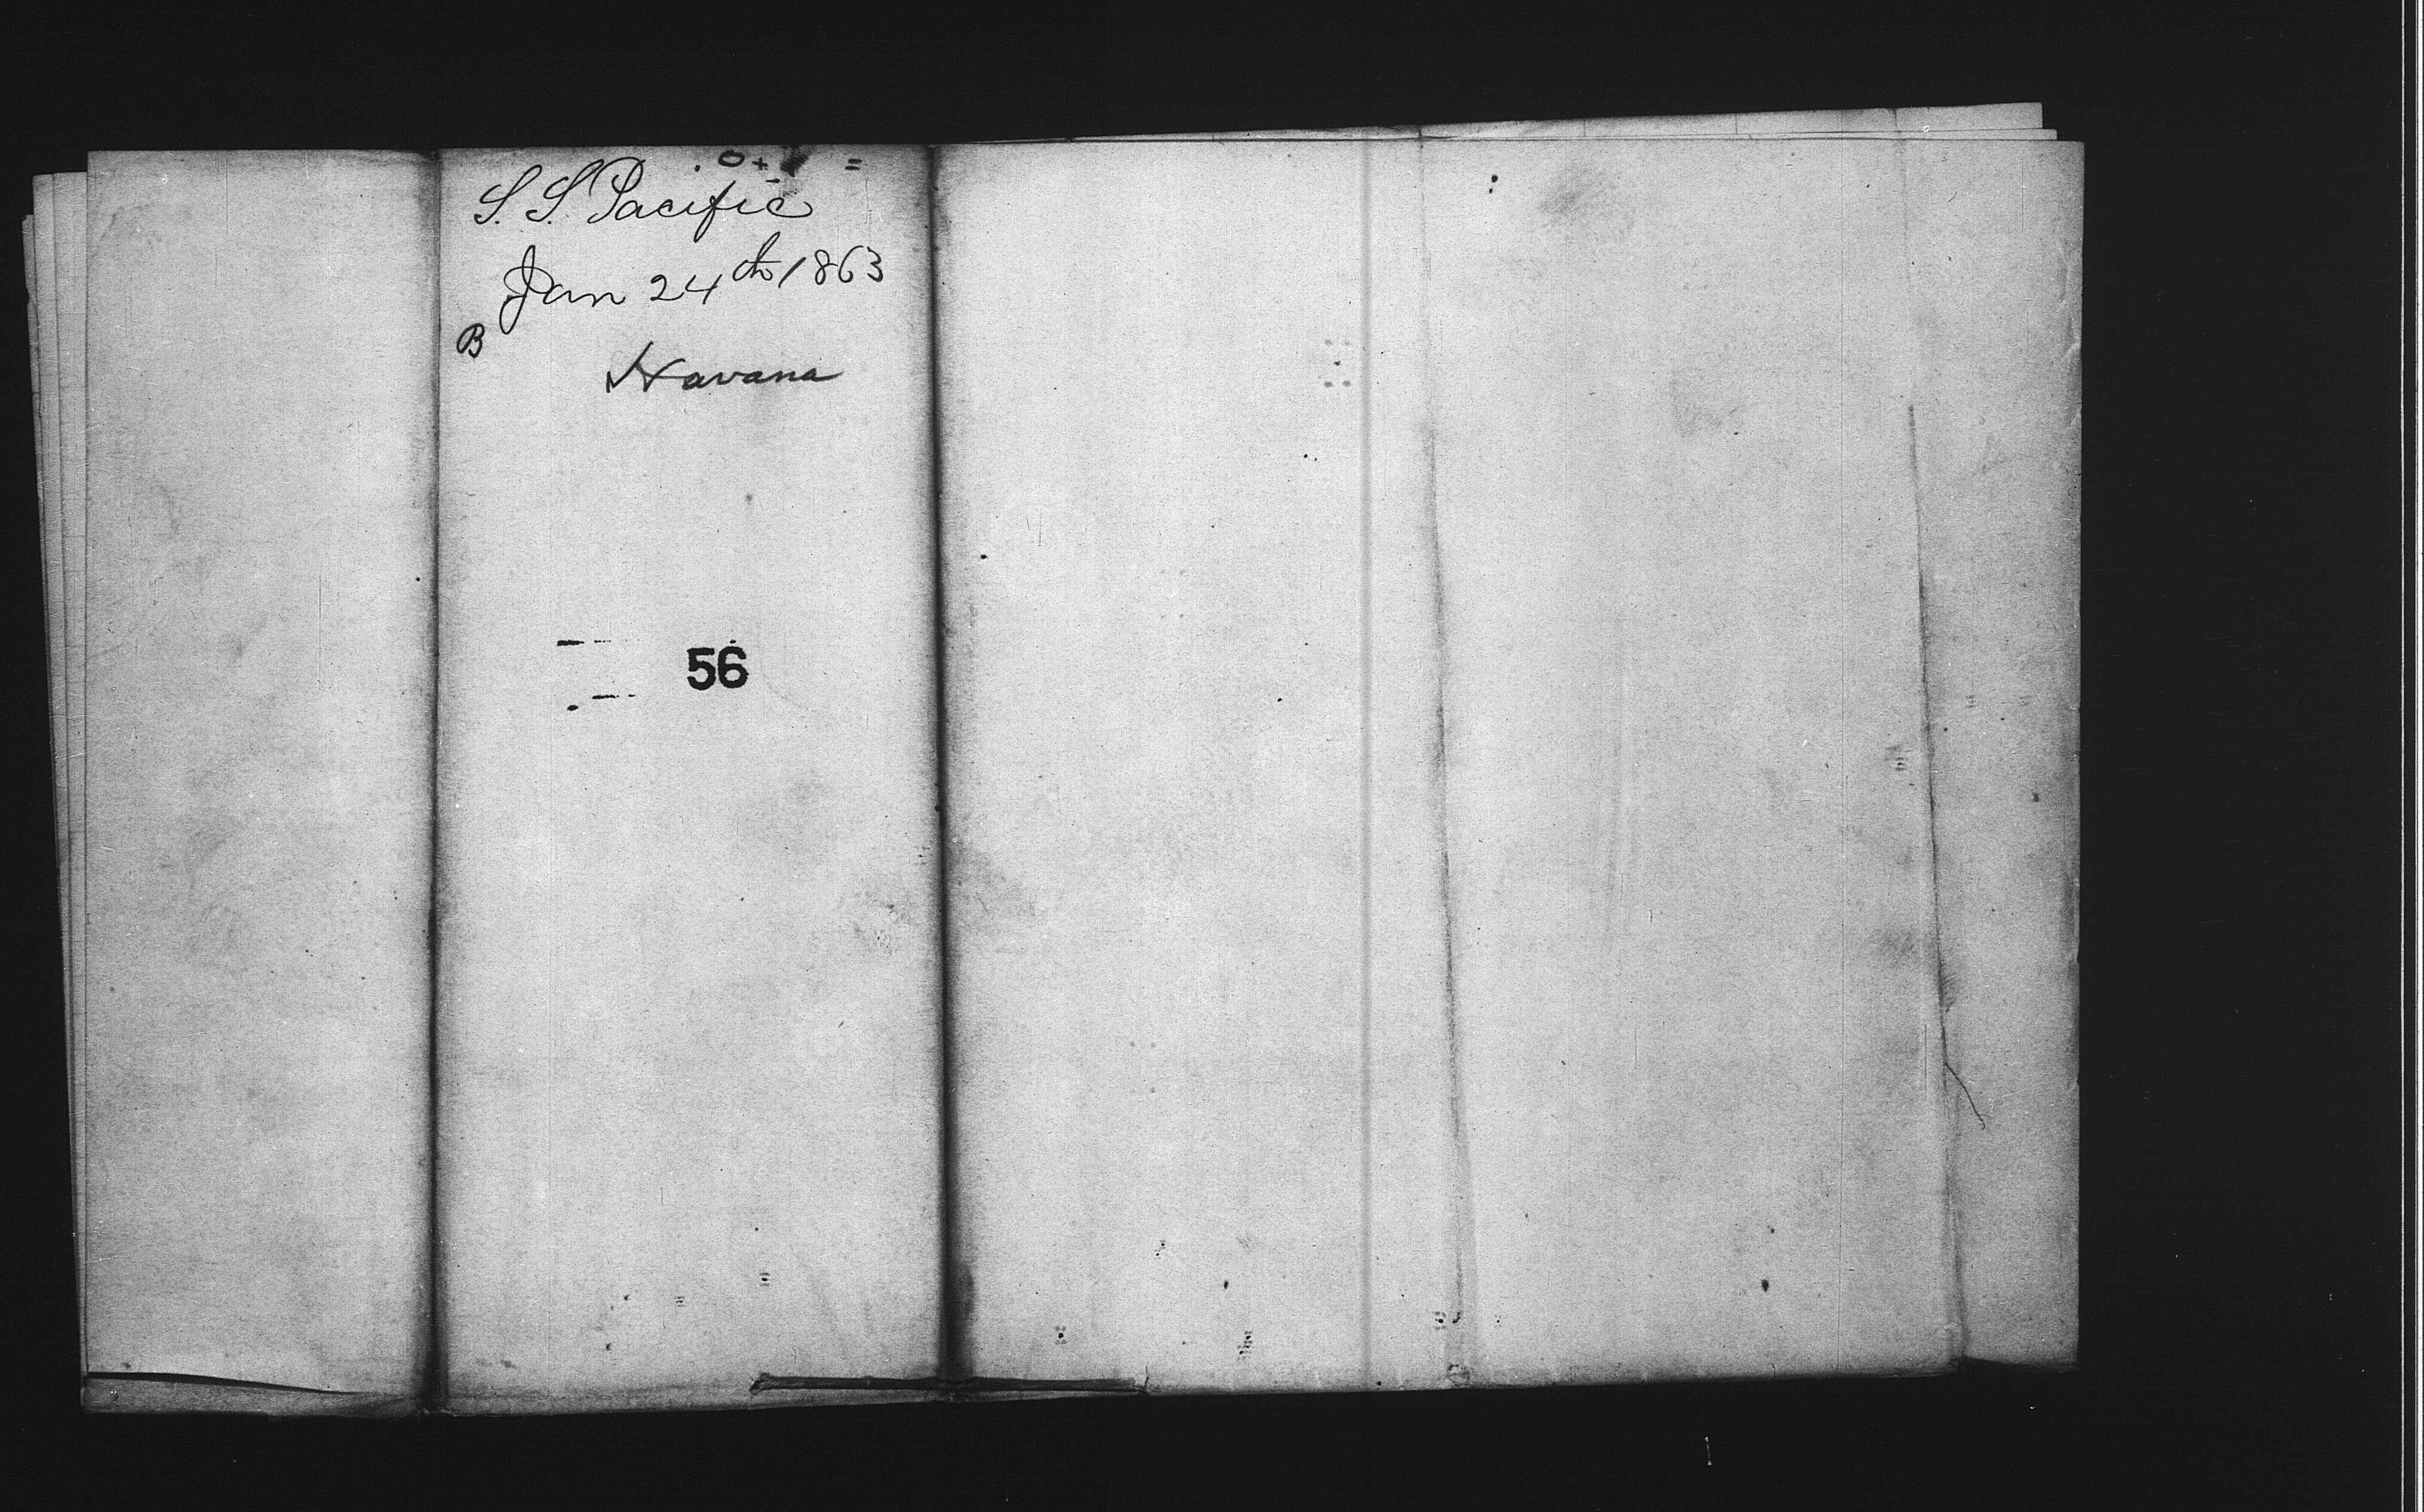 S. S. Pacific
Jan 24th 1863
B
Havana
56